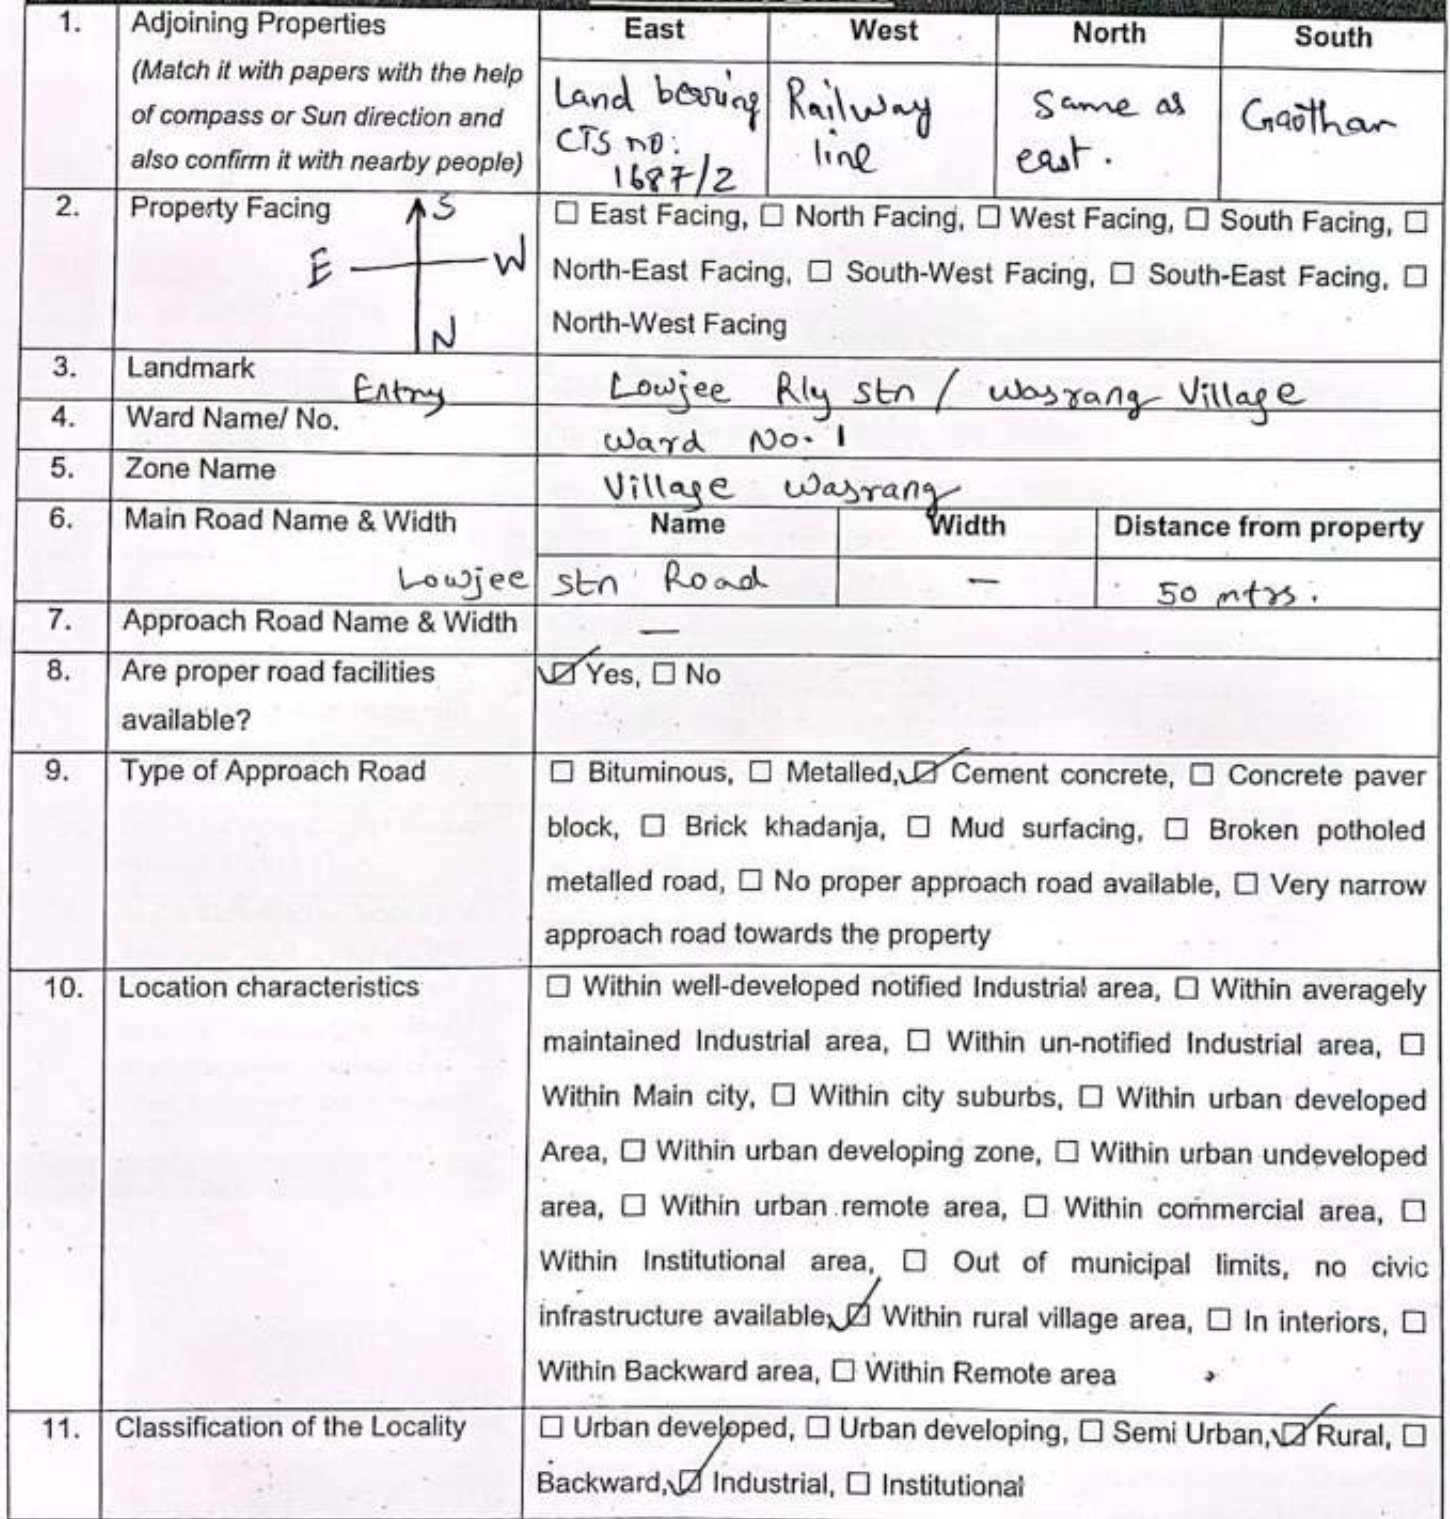 1. Adjoining Properties East West North South
(Match it with papers with the help
of compass or Sun direction and
also confirm it with nearby people)
Land bearing
CTS no:
1687/2
Railway
line
Same as
east.
Gaothan
2. Property Facing
S
E W
N
Entry
☐ East Facing, ☐ North Facing, ☐ West Facing, ☐ South Facing, ☐
North-East Facing, ☐ South-West Facing, ☐ South-East Facing, ☐
North-West Facing
3. Landmark Lowjee Rly Stn / Wasrang Village
4. Ward Name/ No. Ward No. 1
5. Zone Name Village Wasrang
6. Main Road Name & Width Name Width Distance from property
Lowjee Stn Road — 50 mtrs.
7. Approach Road Name & Width —
8. Are proper road facilities
available?
☑ Yes, ☐ No
9. Type of Approach Road ☐ Bituminous, ☐ Metalled, ☑ Cement concrete, ☐ Concrete paver
block, ☐ Brick khadanja, ☐ Mud surfacing, ☐ Broken potholed
metalled road, ☐ No proper approach road available, ☐ Very narrow
approach road towards the property
10. Location characteristics ☐ Within well-developed notified Industrial area, ☐ Within averagely
maintained Industrial area, ☐ Within un-notified Industrial area, ☐
Within Main city, ☐ Within city suburbs, ☐ Within urban developed
Area, ☐ Within urban developing zone, ☐ Within urban undeveloped
area, ☐ Within urban remote area, ☐ Within commercial area, ☐
Within Institutional area, ☐ Out of municipal limits, no civic
infrastructure available, ☑ Within rural village area, ☐ In interiors, ☐
Within Backward area, ☐ Within Remote area
11. Classification of the Locality ☐ Urban developed, ☐ Urban developing, ☐ Semi Urban, ☑ Rural, ☐
Backward, ☑ Industrial, ☐ Institutional